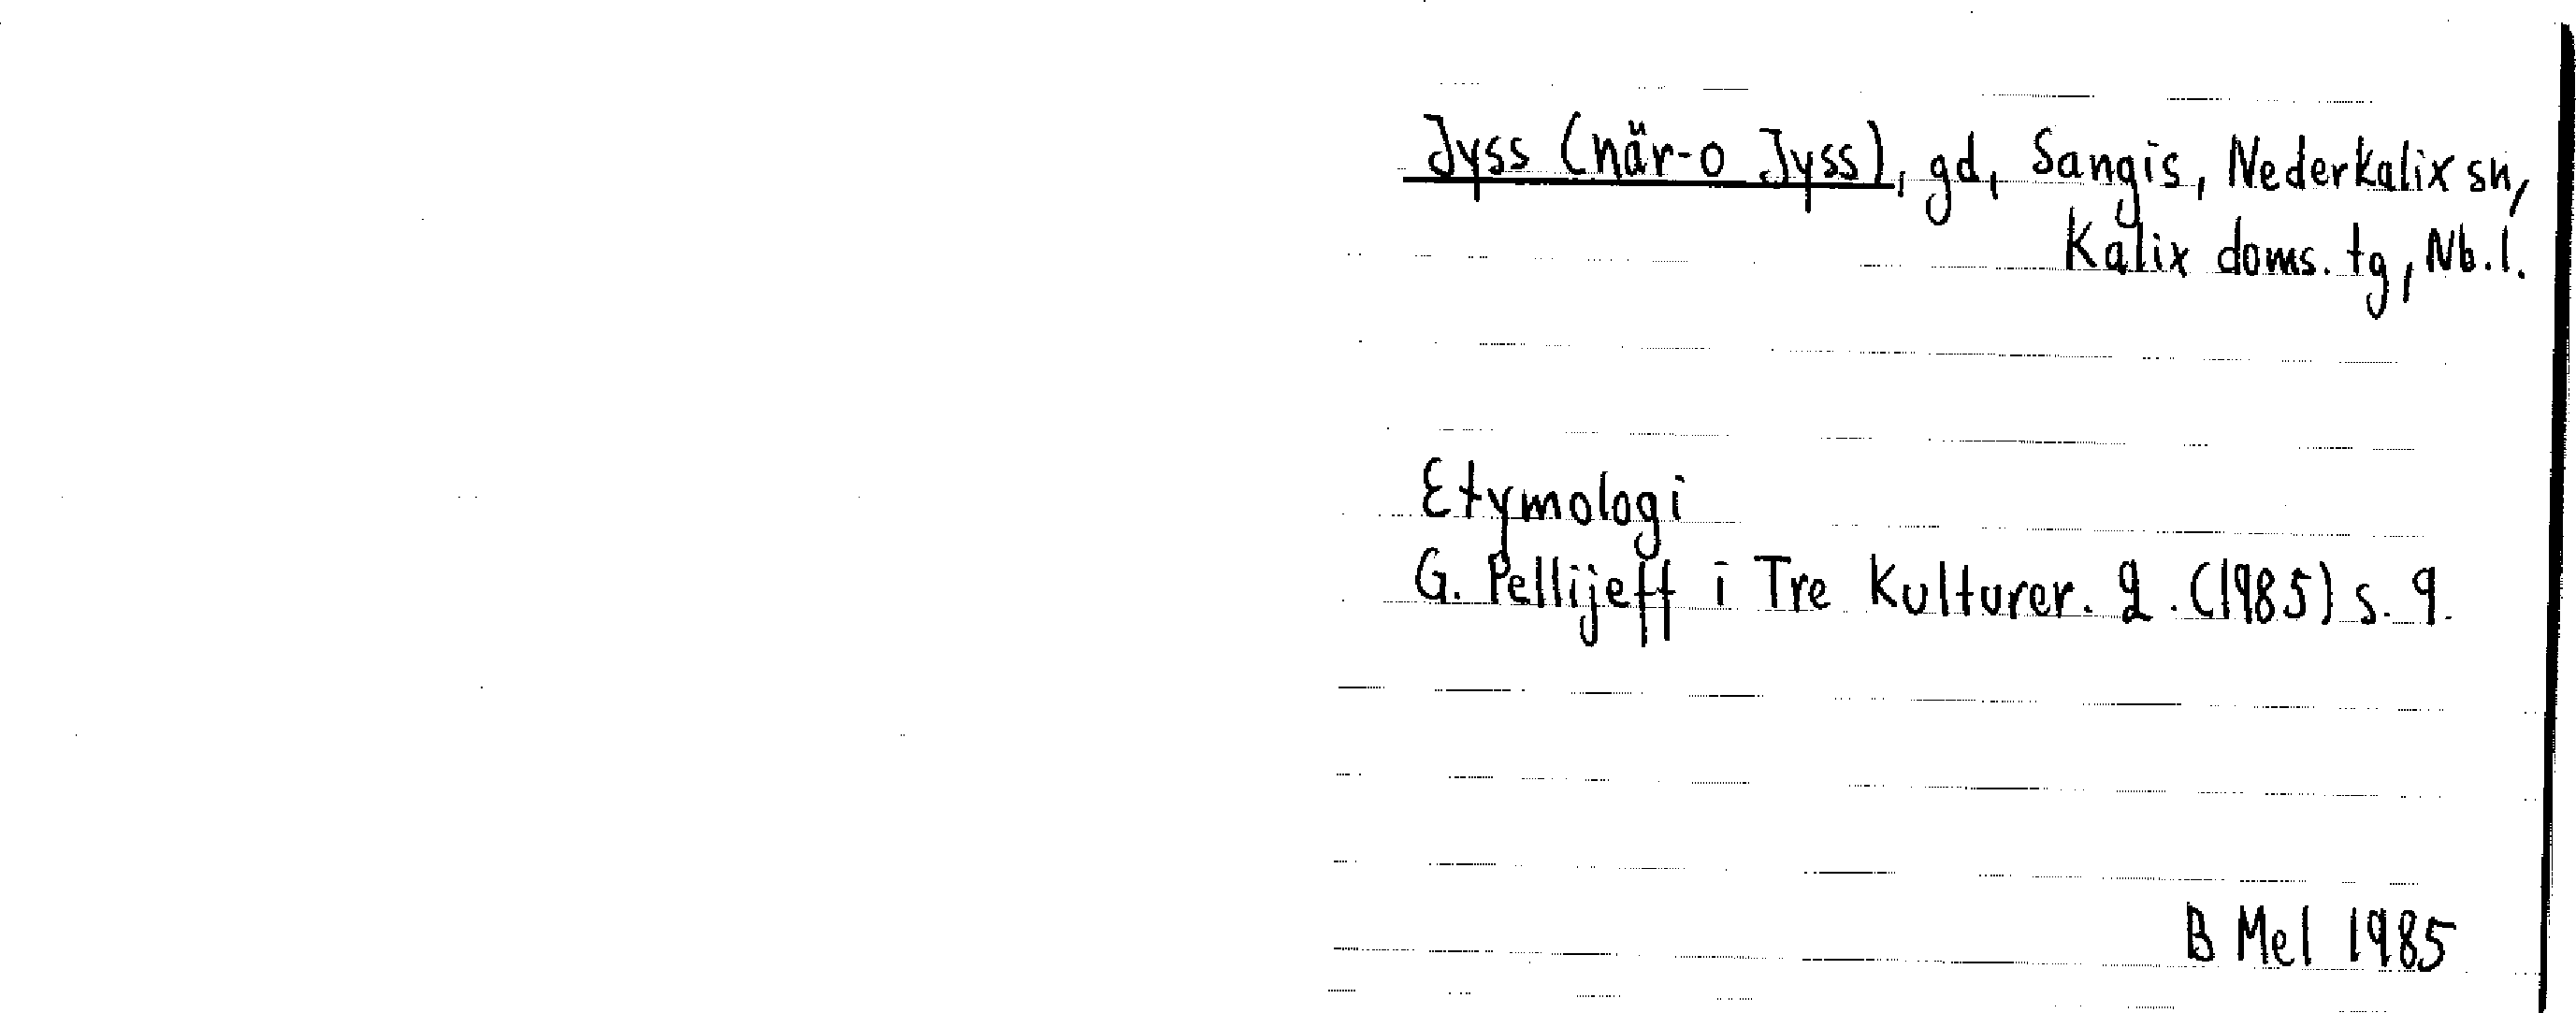 Jyss (når-o Jyss), gd, Sangis, Nederkalix sn,
Kalix doms. tg, Nb. l.
Etymologi
G. Pellijeff i Tre Kulturer. 2. (1985) s. 9.
B Mel 1985